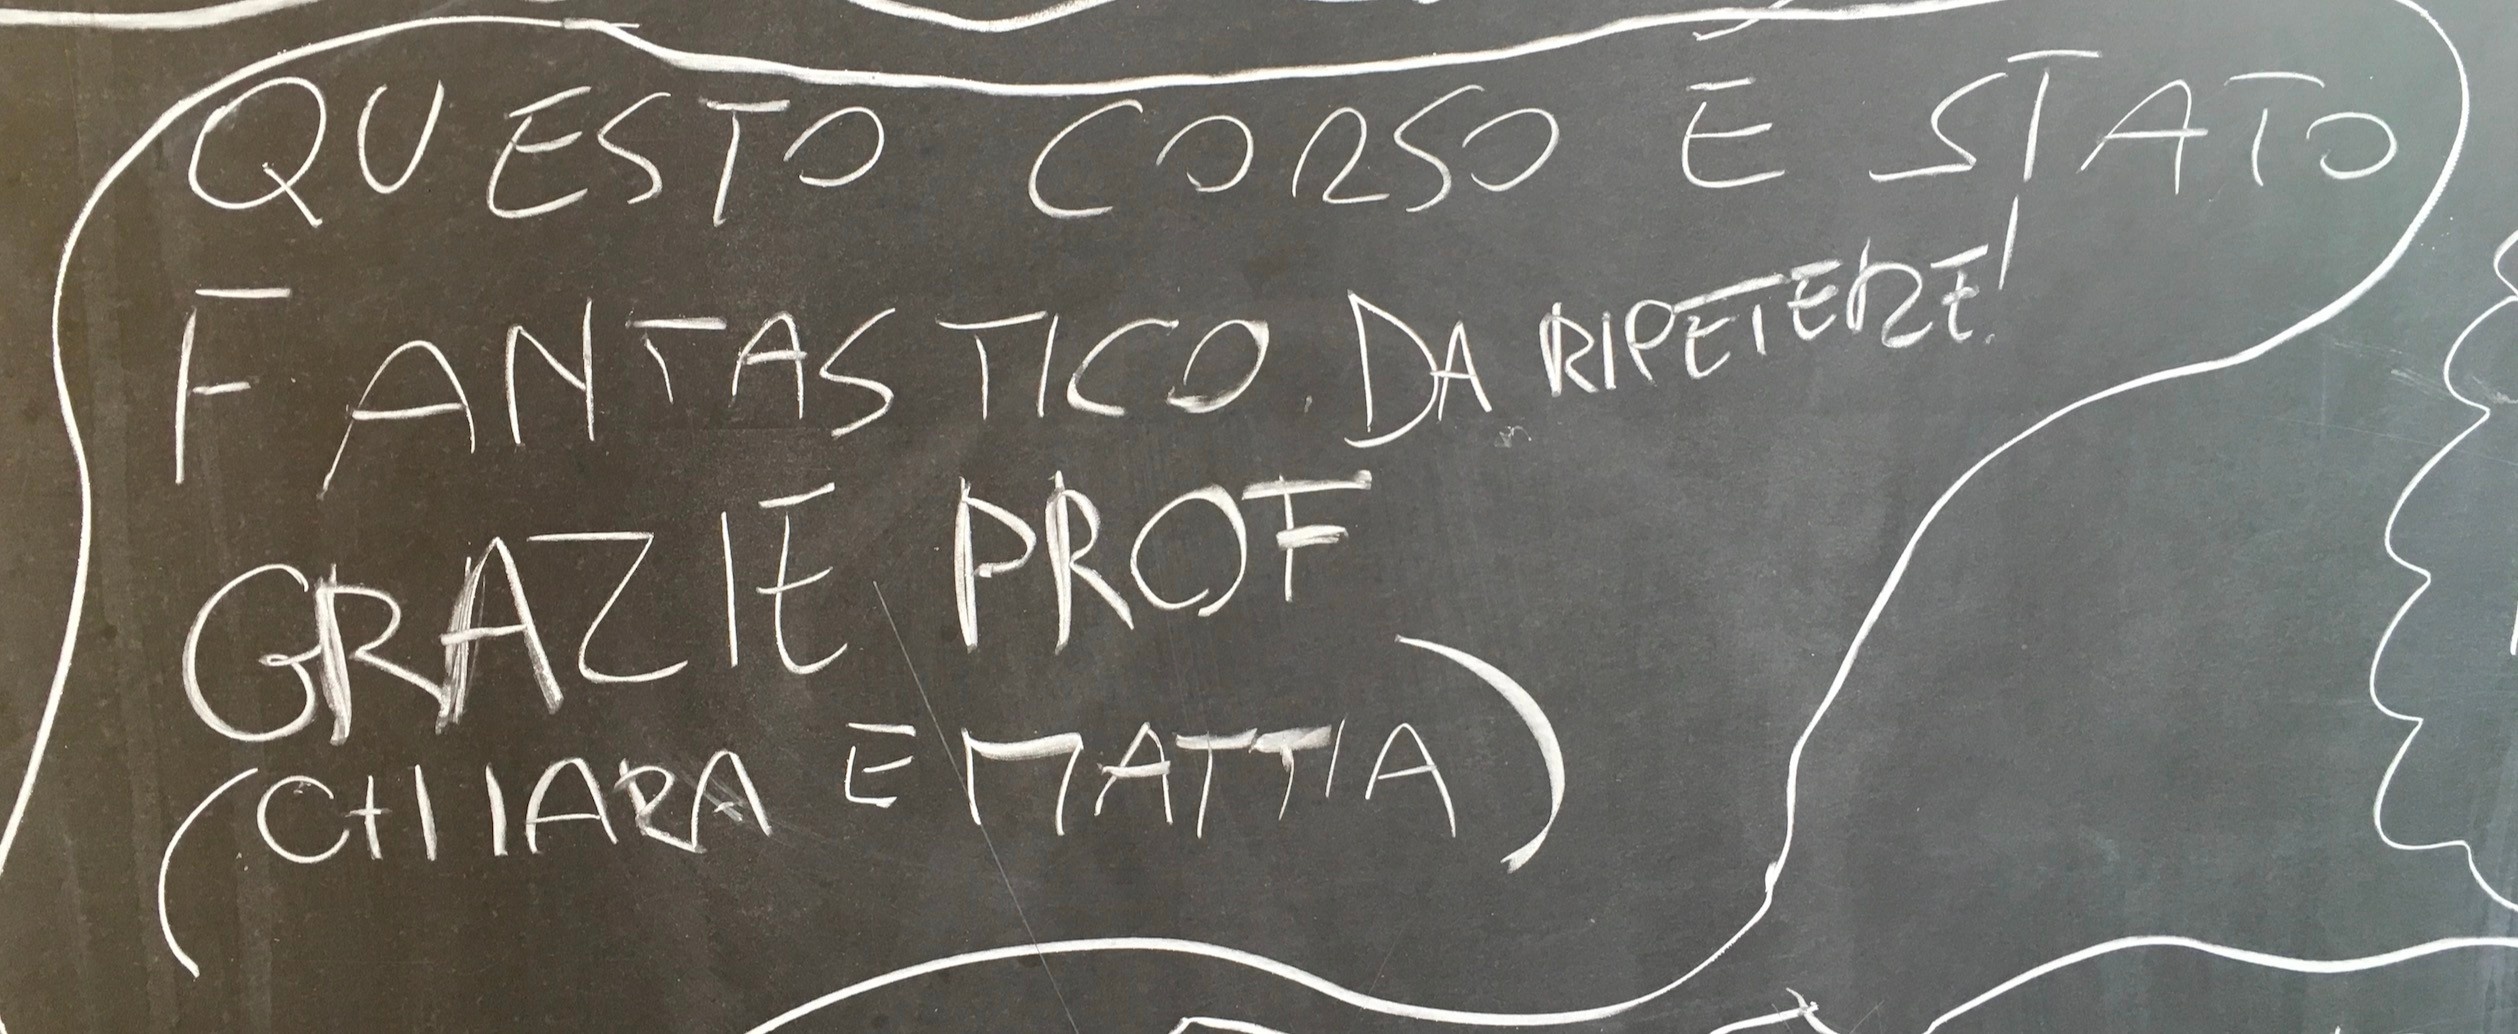 QUESTO CORSO È STATO
FANTASTICO. DA RIPETERE!
GRAZIE PROF
(CHIARA E MATTIA)